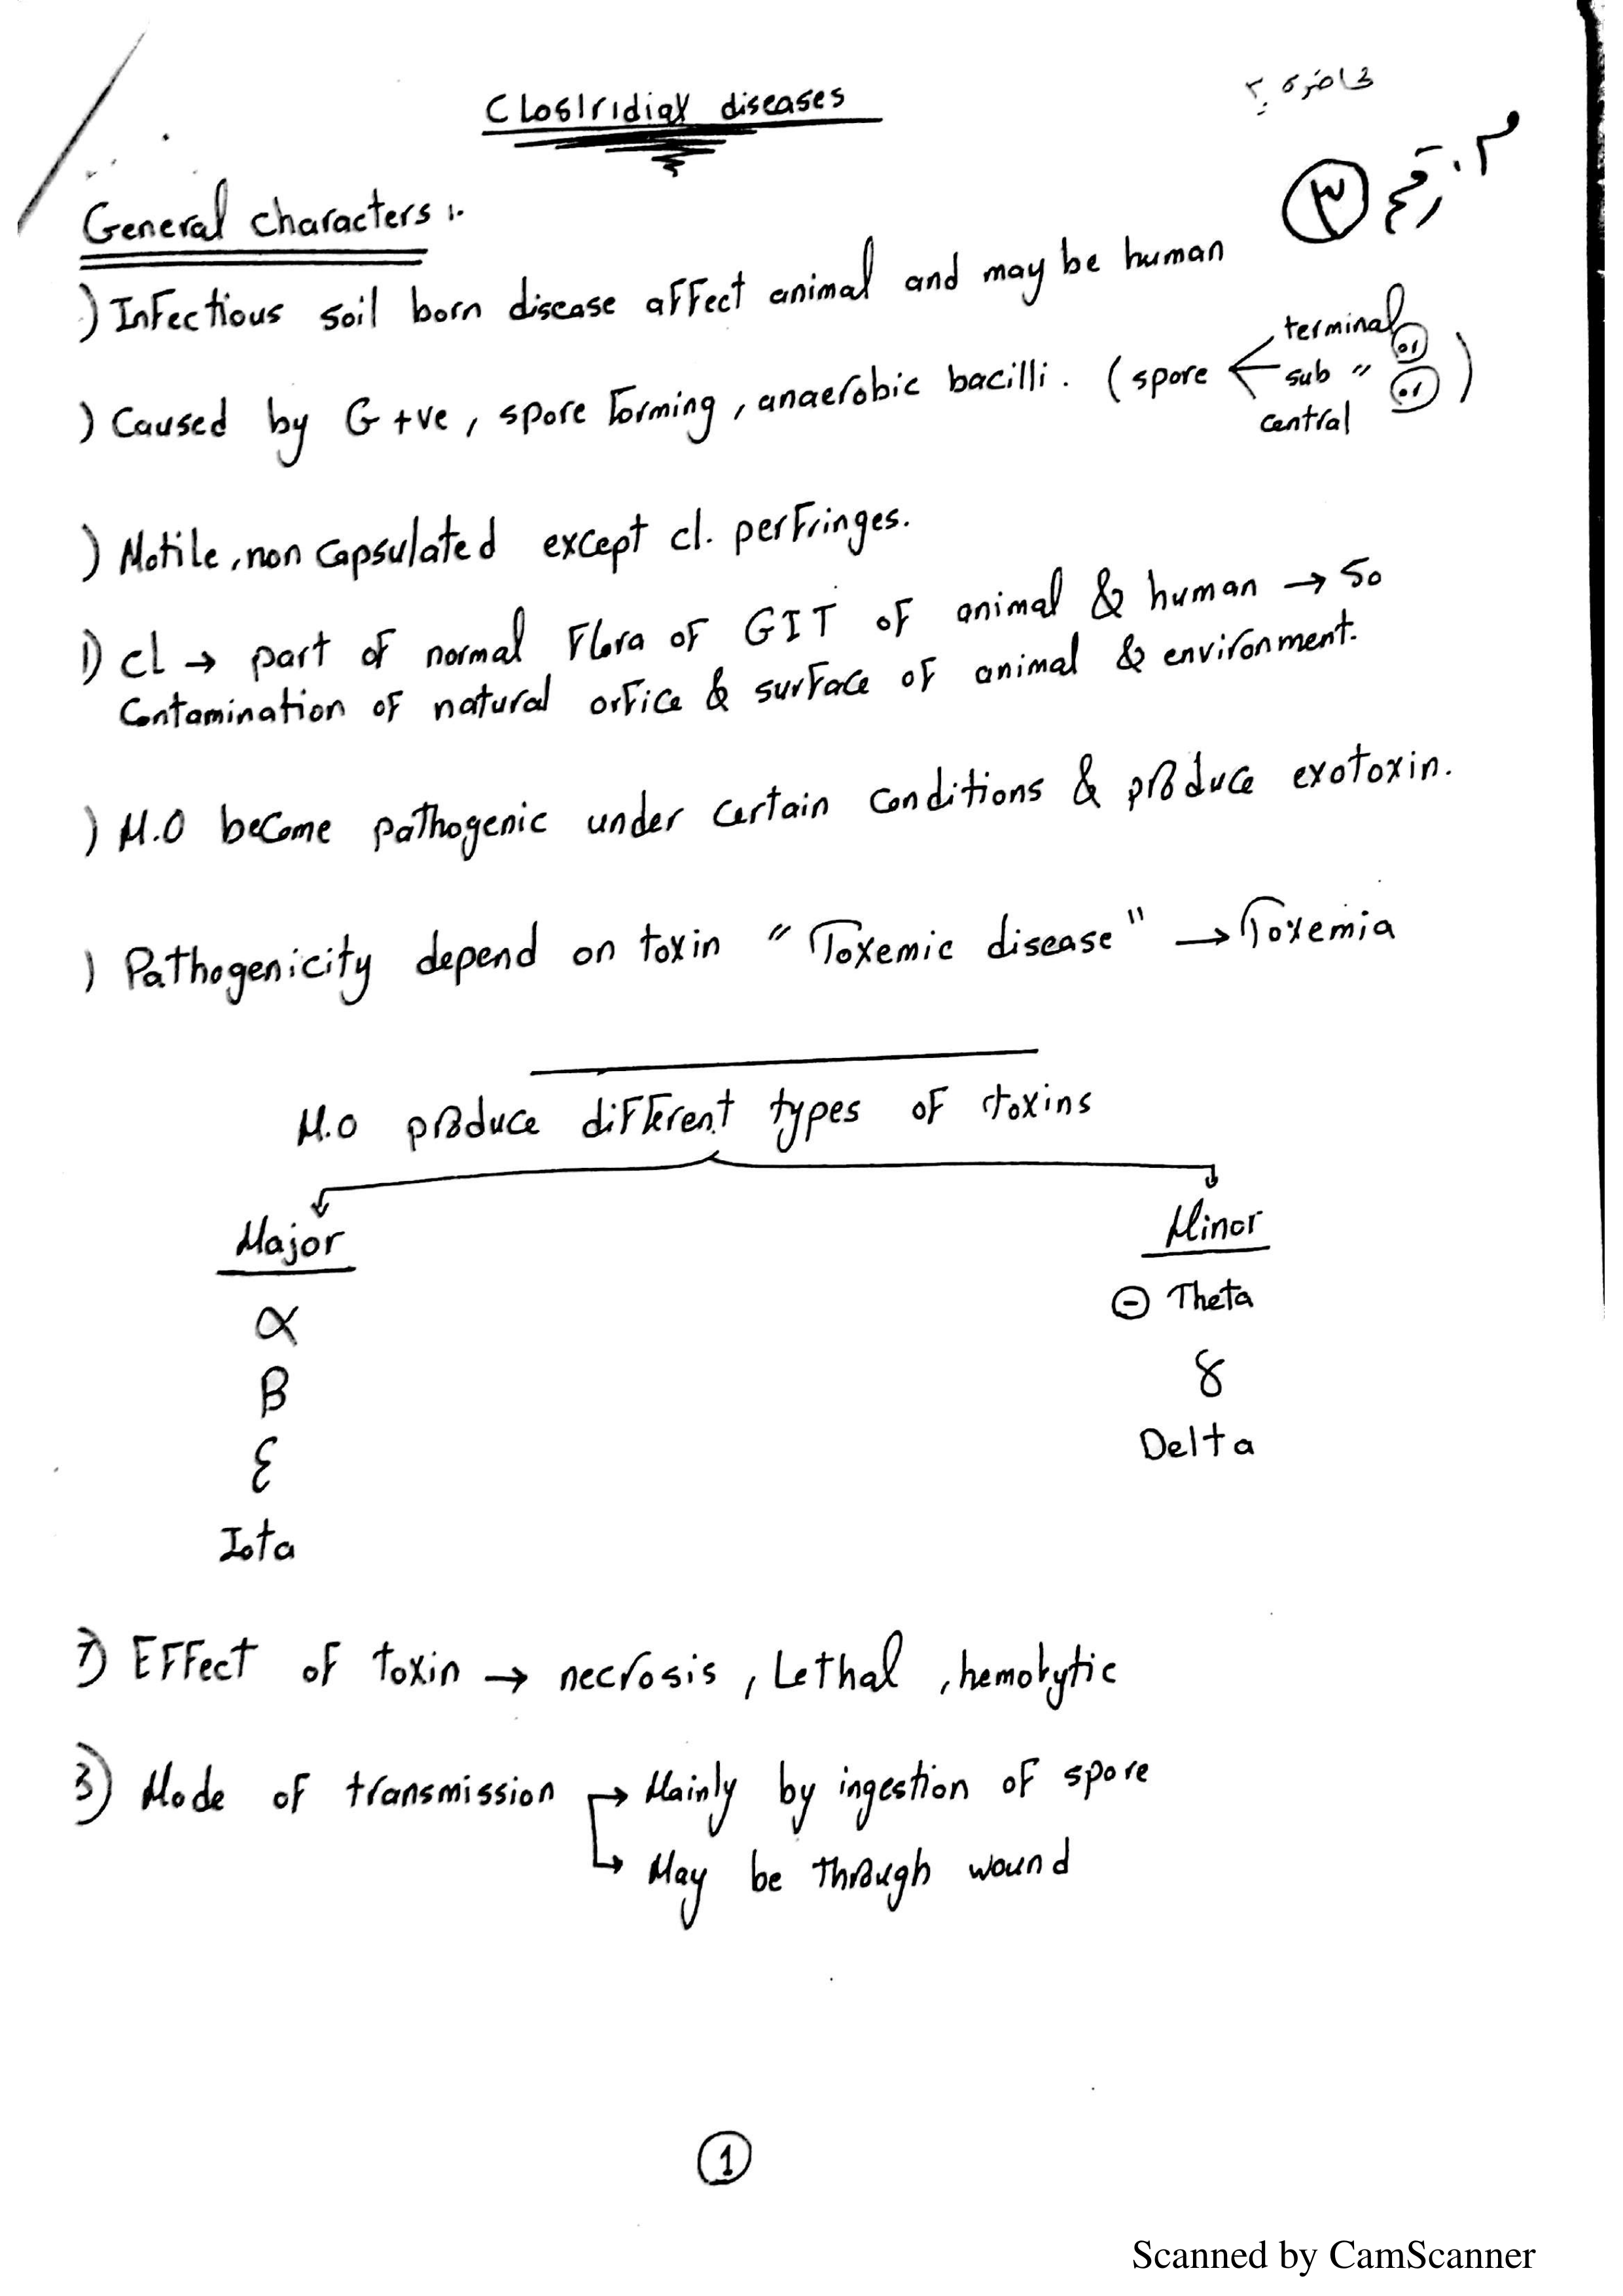 Clostridial diseases
محاضرة ٢
م. رقم ٣
General characters :-
) Infectious soil born disease affect animal and may be human
) Caused by G +ve , spore forming , anaerobic bacilli . ( spore terminal or sub " or central )
) Motile , non capsulated except cl. perfringes .
) cl → part of normal flora of GIT of animal & human → So
Contamination of natural orfice & surface of animal & environment .
) M.O become pathogenic under certain conditions & produce exotoxin .
) Pathogenicity depend on toxin " Toxemic disease " → Toxemia
M.O produce different types of toxins
Major
α
β
ε
Iota
Minor
Θ Theta
δ
Delta
7) Effect of toxin → necrosis , Lethal , hemolytic
8) Mode of transmission → Mainly by ingestion of spore
→ May be through wound
1
Scanned by CamScanner